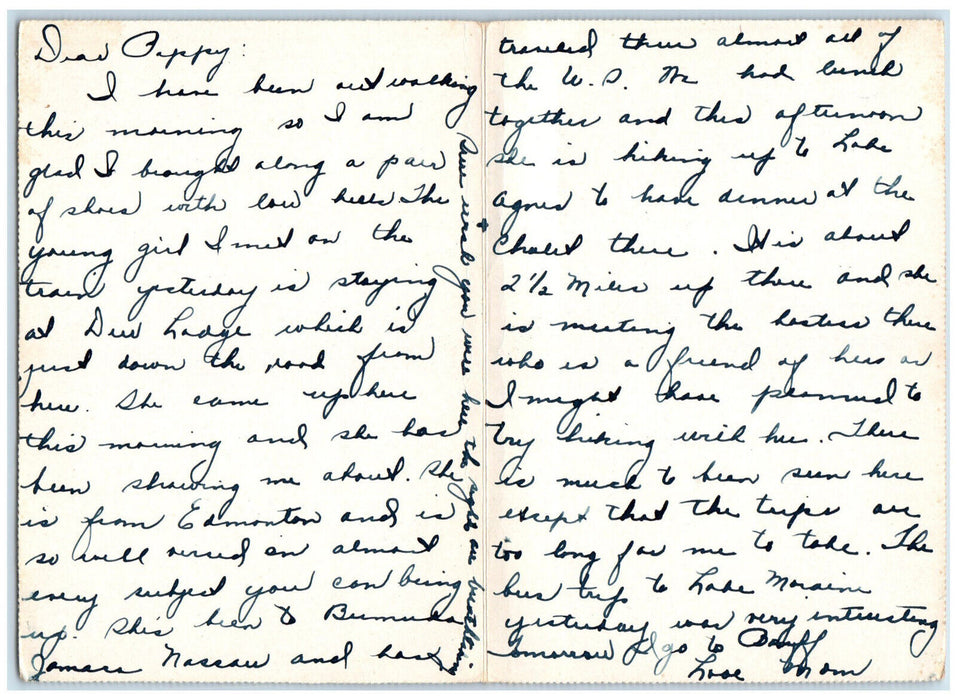 Dear Peppy:
I have been out walking
this morning so I am
glad I brought along a pair
of shoes with low heels. The
young girl I met on the
train yesterday is staying
at Deer Lodge which is
just down the road from
here. She came up here
this morning and she has
been showing me about. She
is from Edmonton and is
so well versed on almost
every subject you can being
up. She's been to Bermuda
Jamaca Nassau and has
traveled thru almost all of
the U.S. We had lunch
together and this afternoon
she is hiking up to Lake
Agnes to have dinner at the
Chalet there. It is about
2 1/2 Miles up there and she
is meeting the hostess there
who is a friend of hers or
I might have planned to
try hiking with her. There
is much to been seen here
except that the trips are
too long for me to take. The
bus trip to Lake Moraine
yesterday was very interesting
Tomorrow I go to Banff
Love Mom
Sure wish you were here the sights are breathtaking